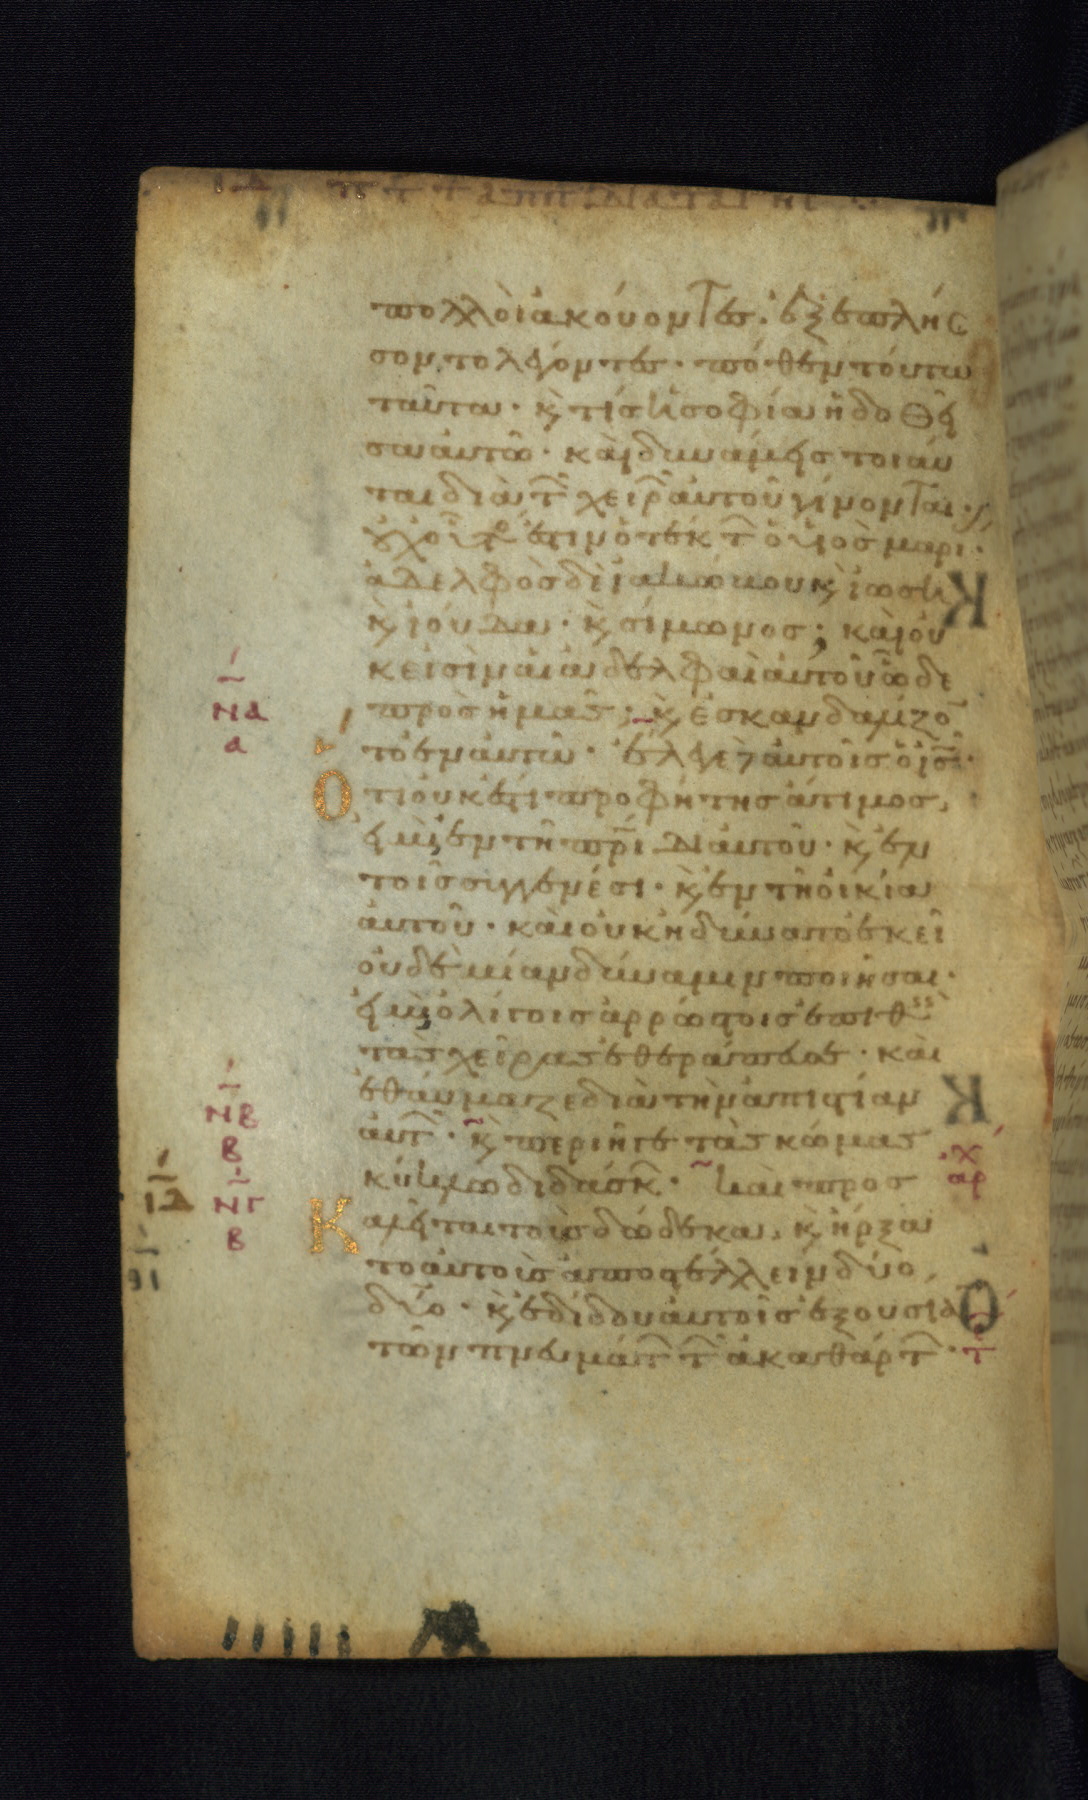 πολλοὶ ἀκούοντες· ἐξεπλήσ
σοντο λέγοντες· πόθεν τούτω
ταῦτα· κ̀ τίς ἡ σοφία ἡ δοθεῖ
σα αὐτῶ· καὶ δυνάμεις τοιαῦ
ται διὰ τ̑ χειρ̑ αὐτοῦ γίνονται·
οὐχ οὗτός ἐστιν ὁ τέκτ̑ ὁ υἱὸς μαρι·
ἀδελφὸς δὲ ἰακώβου κ̀ ἰωσῆ
κ̀ ἰούδα· κ̀ σίμωνος; καὶ οὐ
κ εἰσὶν αἱ ἀδελφαὶ αὐτοῦ ὧδε
πρὸς ἡμᾶς; κ̀ ἐσκανδαλίζο
το ἐν αὐτῶ· ἔλεγε δὲ αὐτοῖς ὁ ἰς̅·
Ὅτι οὐκ ἔστι προφήτης ἄτιμος,
εἰ μὴ ἐν τῆ πρι̅δι αὐτοῦ· κ̀ ἐν
τοῖς συγγενέσι· κ̀ ἐν τῆ οἰκία
αὐτοῦ· καὶ οὐκ ἠδύνατο ἐκεῖ
οὐδεμίαν δύναμιν ποιῆσαι·
εἰ μὴ ὀλίγοις ἀρρώστοις ἐπιθ
τὰς χεῖρας ἐθεράπευσε· καὶ
ἐθαύμαζε διὰ τὴν ἀπιστίαν
αὐτ̑· κ̀ περιῆγε τὰς κώμας
κύκλω διδάσκ̑· καὶ προς
Καλεῖται τοὺς δώδεκα, κ̀ ἤρξα
το αὐτοὺς ἀποστέλλειν δύο
δύο· κ̀ ἐδίδου αὐτοῖς ἐξουσία
τῶν πνευμάτ̑ τ̑ ἀκαθάρτ̑·
ΝΑ
α
ΝΒ
β
ΝΓ
β
ΙΔ
ἀρχ
τ